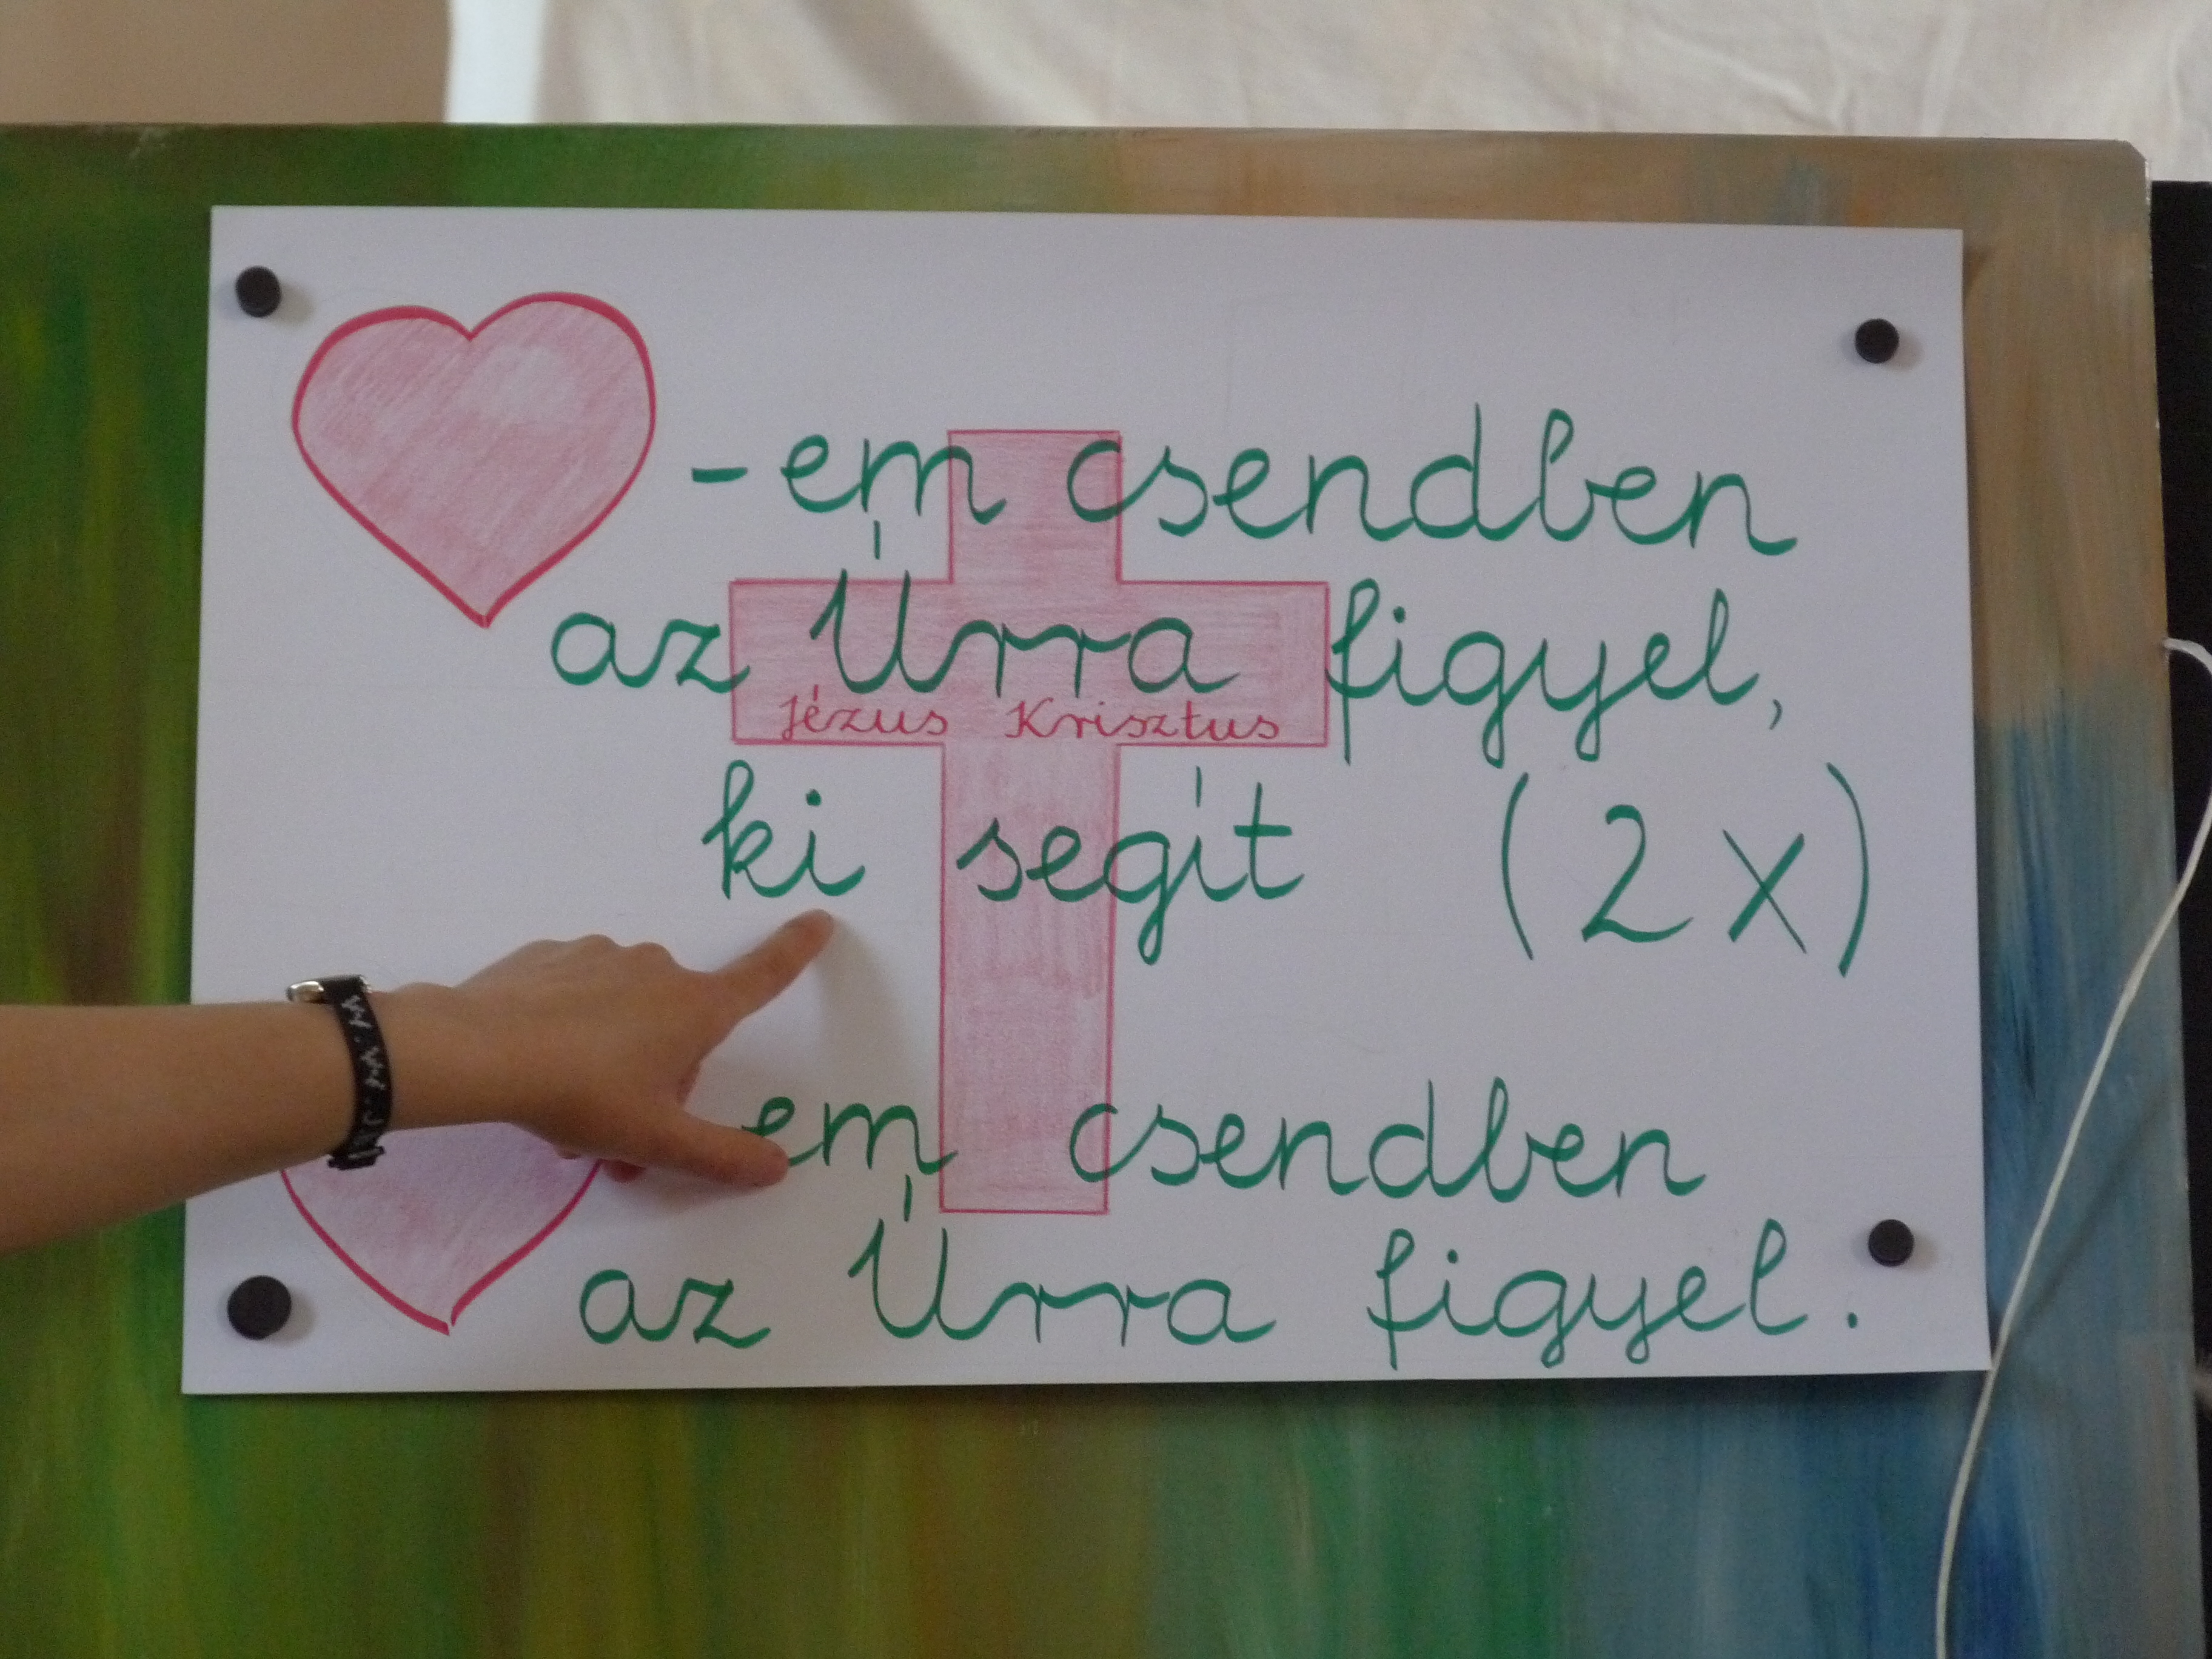 -em csendben
az Úrra figyel,
Jézus Krisztus
ki segít (2x)
em csendben
az Úrra figyel.